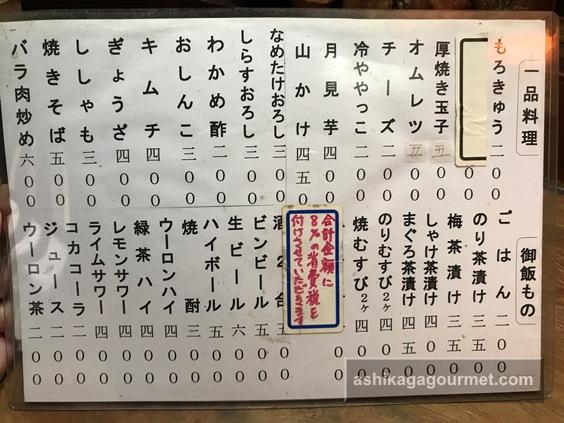 一品料理
もろきゅう 二〇〇
厚焼き玉子 五〇〇
オムレツ 五〇〇
チーズ 二〇〇
冷ややっこ 二〇〇
月見芋 四〇〇
山かけ 四五〇
なめたけおろし 三〇〇
しらすおろし 三〇〇
わかめ酢 二〇〇
おしんこ 三〇〇
キムチ 四〇〇
ぎょうざ 四〇〇
ししゃも 三〇〇
焼きそば 五〇〇
バラ肉炒め 六〇〇
御飯もの
ごはん 二〇〇
のり茶漬け 三五〇
梅茶漬け 三五〇
しゃけ茶漬け 四〇〇
まぐろ茶漬け 四五〇
のりむすび2ヶ 四〇〇
焼むすび2ヶ 四〇〇
合計金額に
8%の消費税を
付けさせていただきます
酒2合
ビンビール 五〇〇
生ビール 六〇〇
ハイボール 五〇〇
焼酎 三〇〇
ウーロンハイ 四〇〇
緑茶ハイ 四〇〇
レモンサワー 四〇〇
ライムサワー 四〇〇
コカコーラ 二〇〇
ジュース 二〇〇
ウーロン茶 二〇〇
ashikagagourmet.com